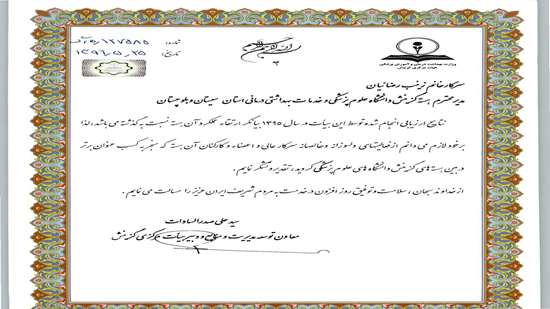 شماره: ۱۲۷۵۸۵
تاریخ: ۱۳۹۶/۵/۲۵
وزارت بهداشت، درمان و آموزش پزشکی
هیات مرکزی گزینش
سرکار خانم زینب رضائیان
مدیر محترم هسته گزینش دانشگاه علوم پزشکی و خدمات بهداشتی درمانی استان سیستان و بلوچستان
نتایج ارزیابی انجام شده توسط این هیات در سال ۱۳۹۵ بیانگر ارتقاء عملکرد آن هسته نسبت به گذشته می باشد، لذا
بر خود لازم می دانم از فعالیتهای دلسوزانه و خالصانه سرکار عالی و اعضاء و کارکنان آن هسته که منجر به کسب عنوان برتر
در بین هسته های گزینش دانشگاه های علوم پزشکی گردید، تقدیر و تشکر نمایم.
از خداوند سبحان، سلامت و توفیق روز افزون در خدمت به مردم شریف ایران عزیز را مسالت می نمایم.
سید علی صدرالسادات
معاون توسعه مدیریت و منابع و دبیر هیات مرکزی گزینش